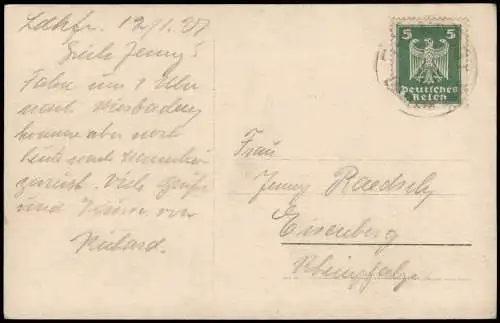 Ldkfr. 12/1. 27
Liebe Jenny!
Fahre um 1 Uhr
nach Wiesbaden
komme aber noch
heute
zurück. Viele Grüße
und Küsse von
Richard.
5 5
Deutsches
Reich
Frau
Jenny Raedsch
Eisenberg
Rheinpfalz.